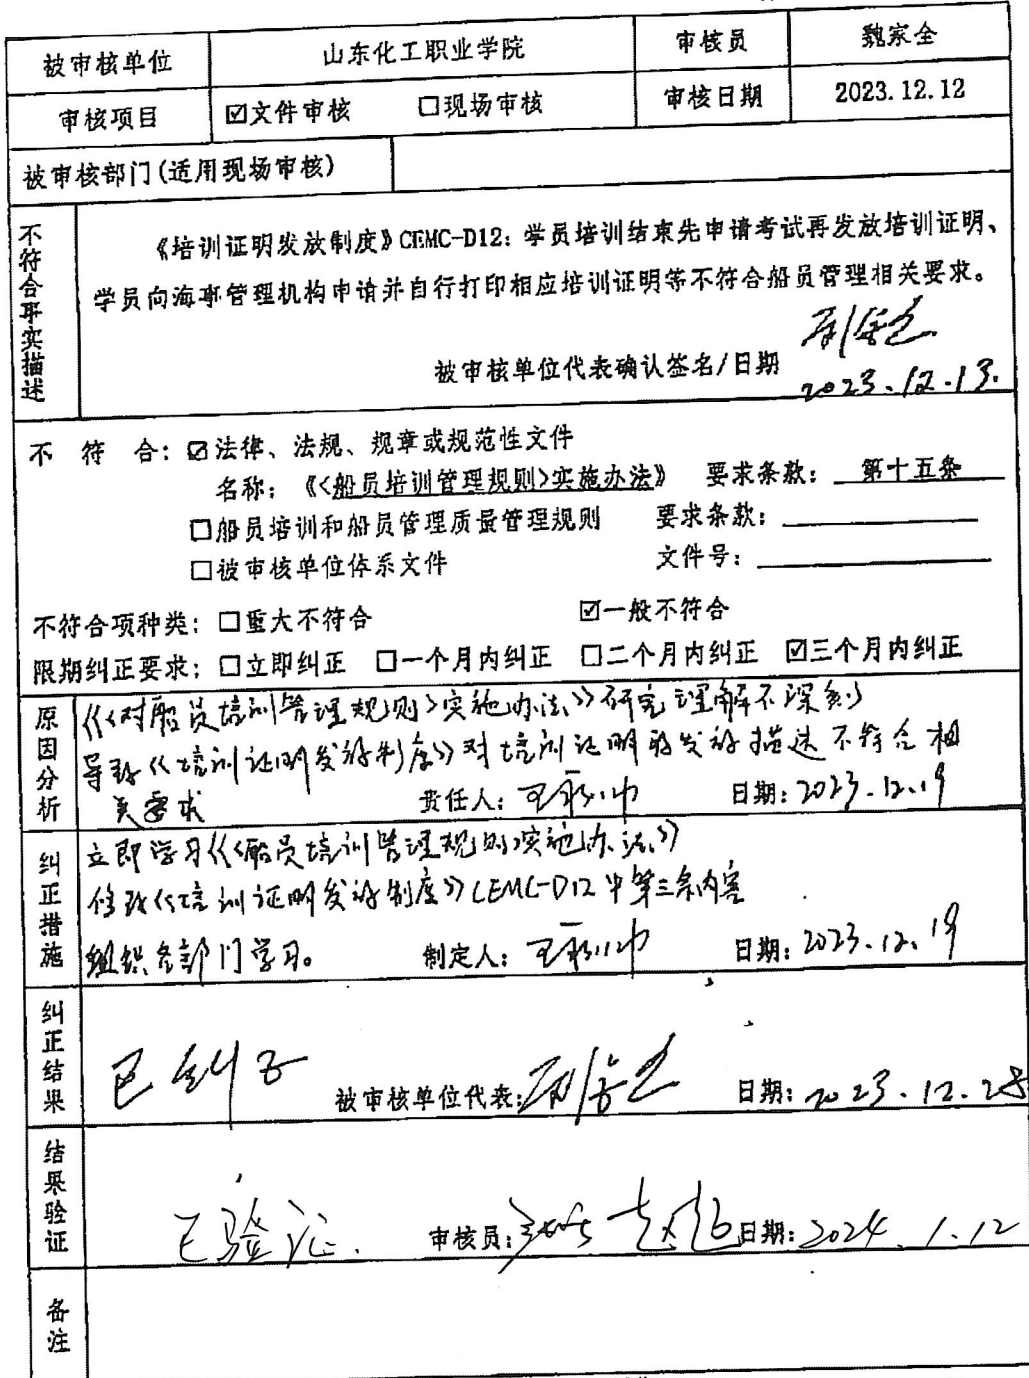 被审核单位 山东化工职业学院 审核员 魏家全
审核项目 ☑文件审核 □现场审核 审核日期 2023.12.12
被审核部门(适用现场审核)
不符合事实描述
《培训证明发放制度》CEMC-D12：学员培训结束先申请考试再发放培训证明、
学员向海事管理机构申请并自行打印相应培训证明等不符合船员管理相关要求。
被审核单位代表确认签名/日期
2023.12.13.
不 符 合：☑法律、法规、规章或规范性文件
名称：《<船员培训管理规则>实施办法》 要求条款：第十五条
□船员培训和船员管理质量管理规则 要求条款：
□被审核单位体系文件 文件号：
不符合项种类：□重大不符合 ☑一般不符合
限期纠正要求：□立即纠正 □一个月内纠正 □二个月内纠正 ☑三个月内纠正
原因分析
《<对船员培训管理规则>实施办法》研究理解不深刻
导致《培训证明发放制度》对培训证明的发放描述不符合相
关要求 责任人： 日期：2023.12.19
纠正措施
立即学习《<船员培训管理规则>实施办法》
修改《培训证明发放制度》CEMC-D12中第三条内容
组织各部门学习。 制定人： 日期：2023.12.19
纠正结果
已纠正 被审核单位代表： 日期：2023.12.28
结果验证
已验证. 审核员： 日期：2024.1.12
备注